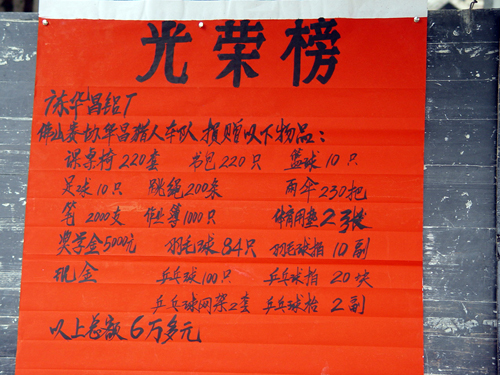 光荣榜
广东华昌铝厂
佛山安协华昌猎人车队 捐赠以下物品：
课桌椅220套 书包220只 篮球10只
足球10只 跳绳200条 雨伞230把
笔2000支 作业簿1000只 体育用垫2张
奖学金5000元 羽毛球84只 羽毛球拍10副
现金 乒乓球100只 乒乓球拍20块
乒乓球网架2套 乒乓球枱2副
以上总额6万多元